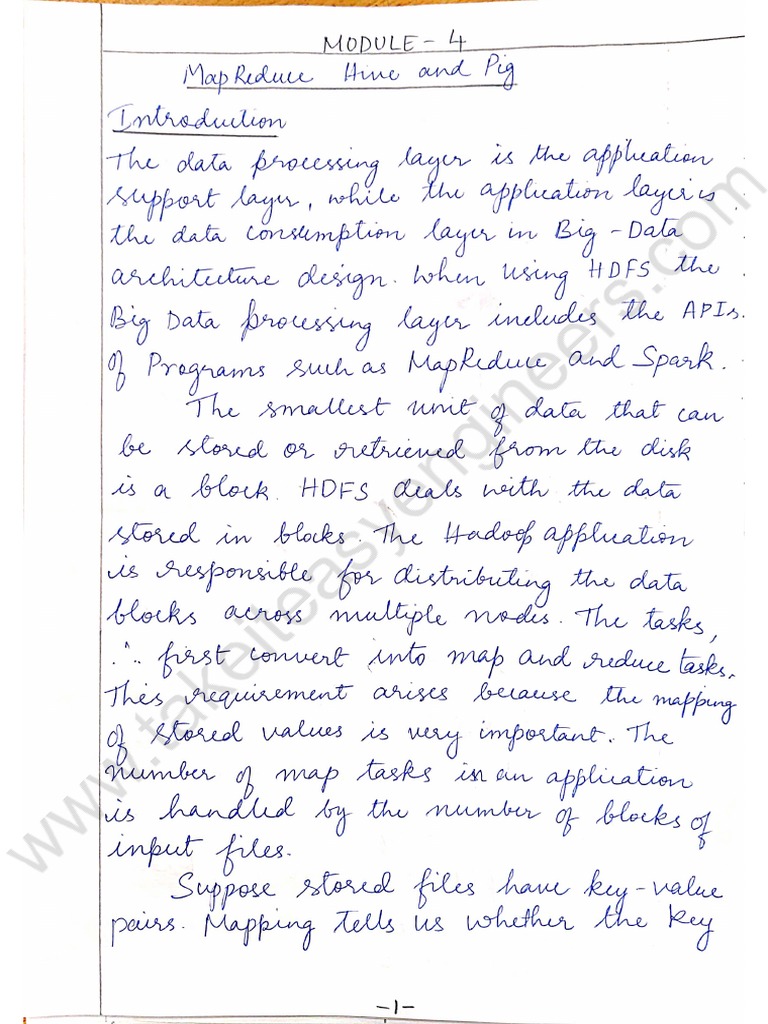 MODULE - 4
MapReduce Hive and Pig
Introduction
The data processing layer is the application
support layer, while the application layer is
the data consumption layer in Big-Data
architecture design. When using HDFS the
Big Data processing layer includes the APIs.
of Programs such as MapReduce and Spark.
The smallest unit of data that can
be stored or retrieved from the disk
is a block. HDFS deals with the data
stored in blocks. The Hadoop application
is responsible for distributing the data
blocks across multiple nodes. The tasks,
∴ first convert into map and reduce tasks.
This requirement arises because the mapping
of stored values is very important. The
number of map tasks in an application
is handled by the number of blocks of
input files.
Suppose stored files have key-value
pairs. Mapping tells us whether the key
-1-
www.takeiteasyengineers.com